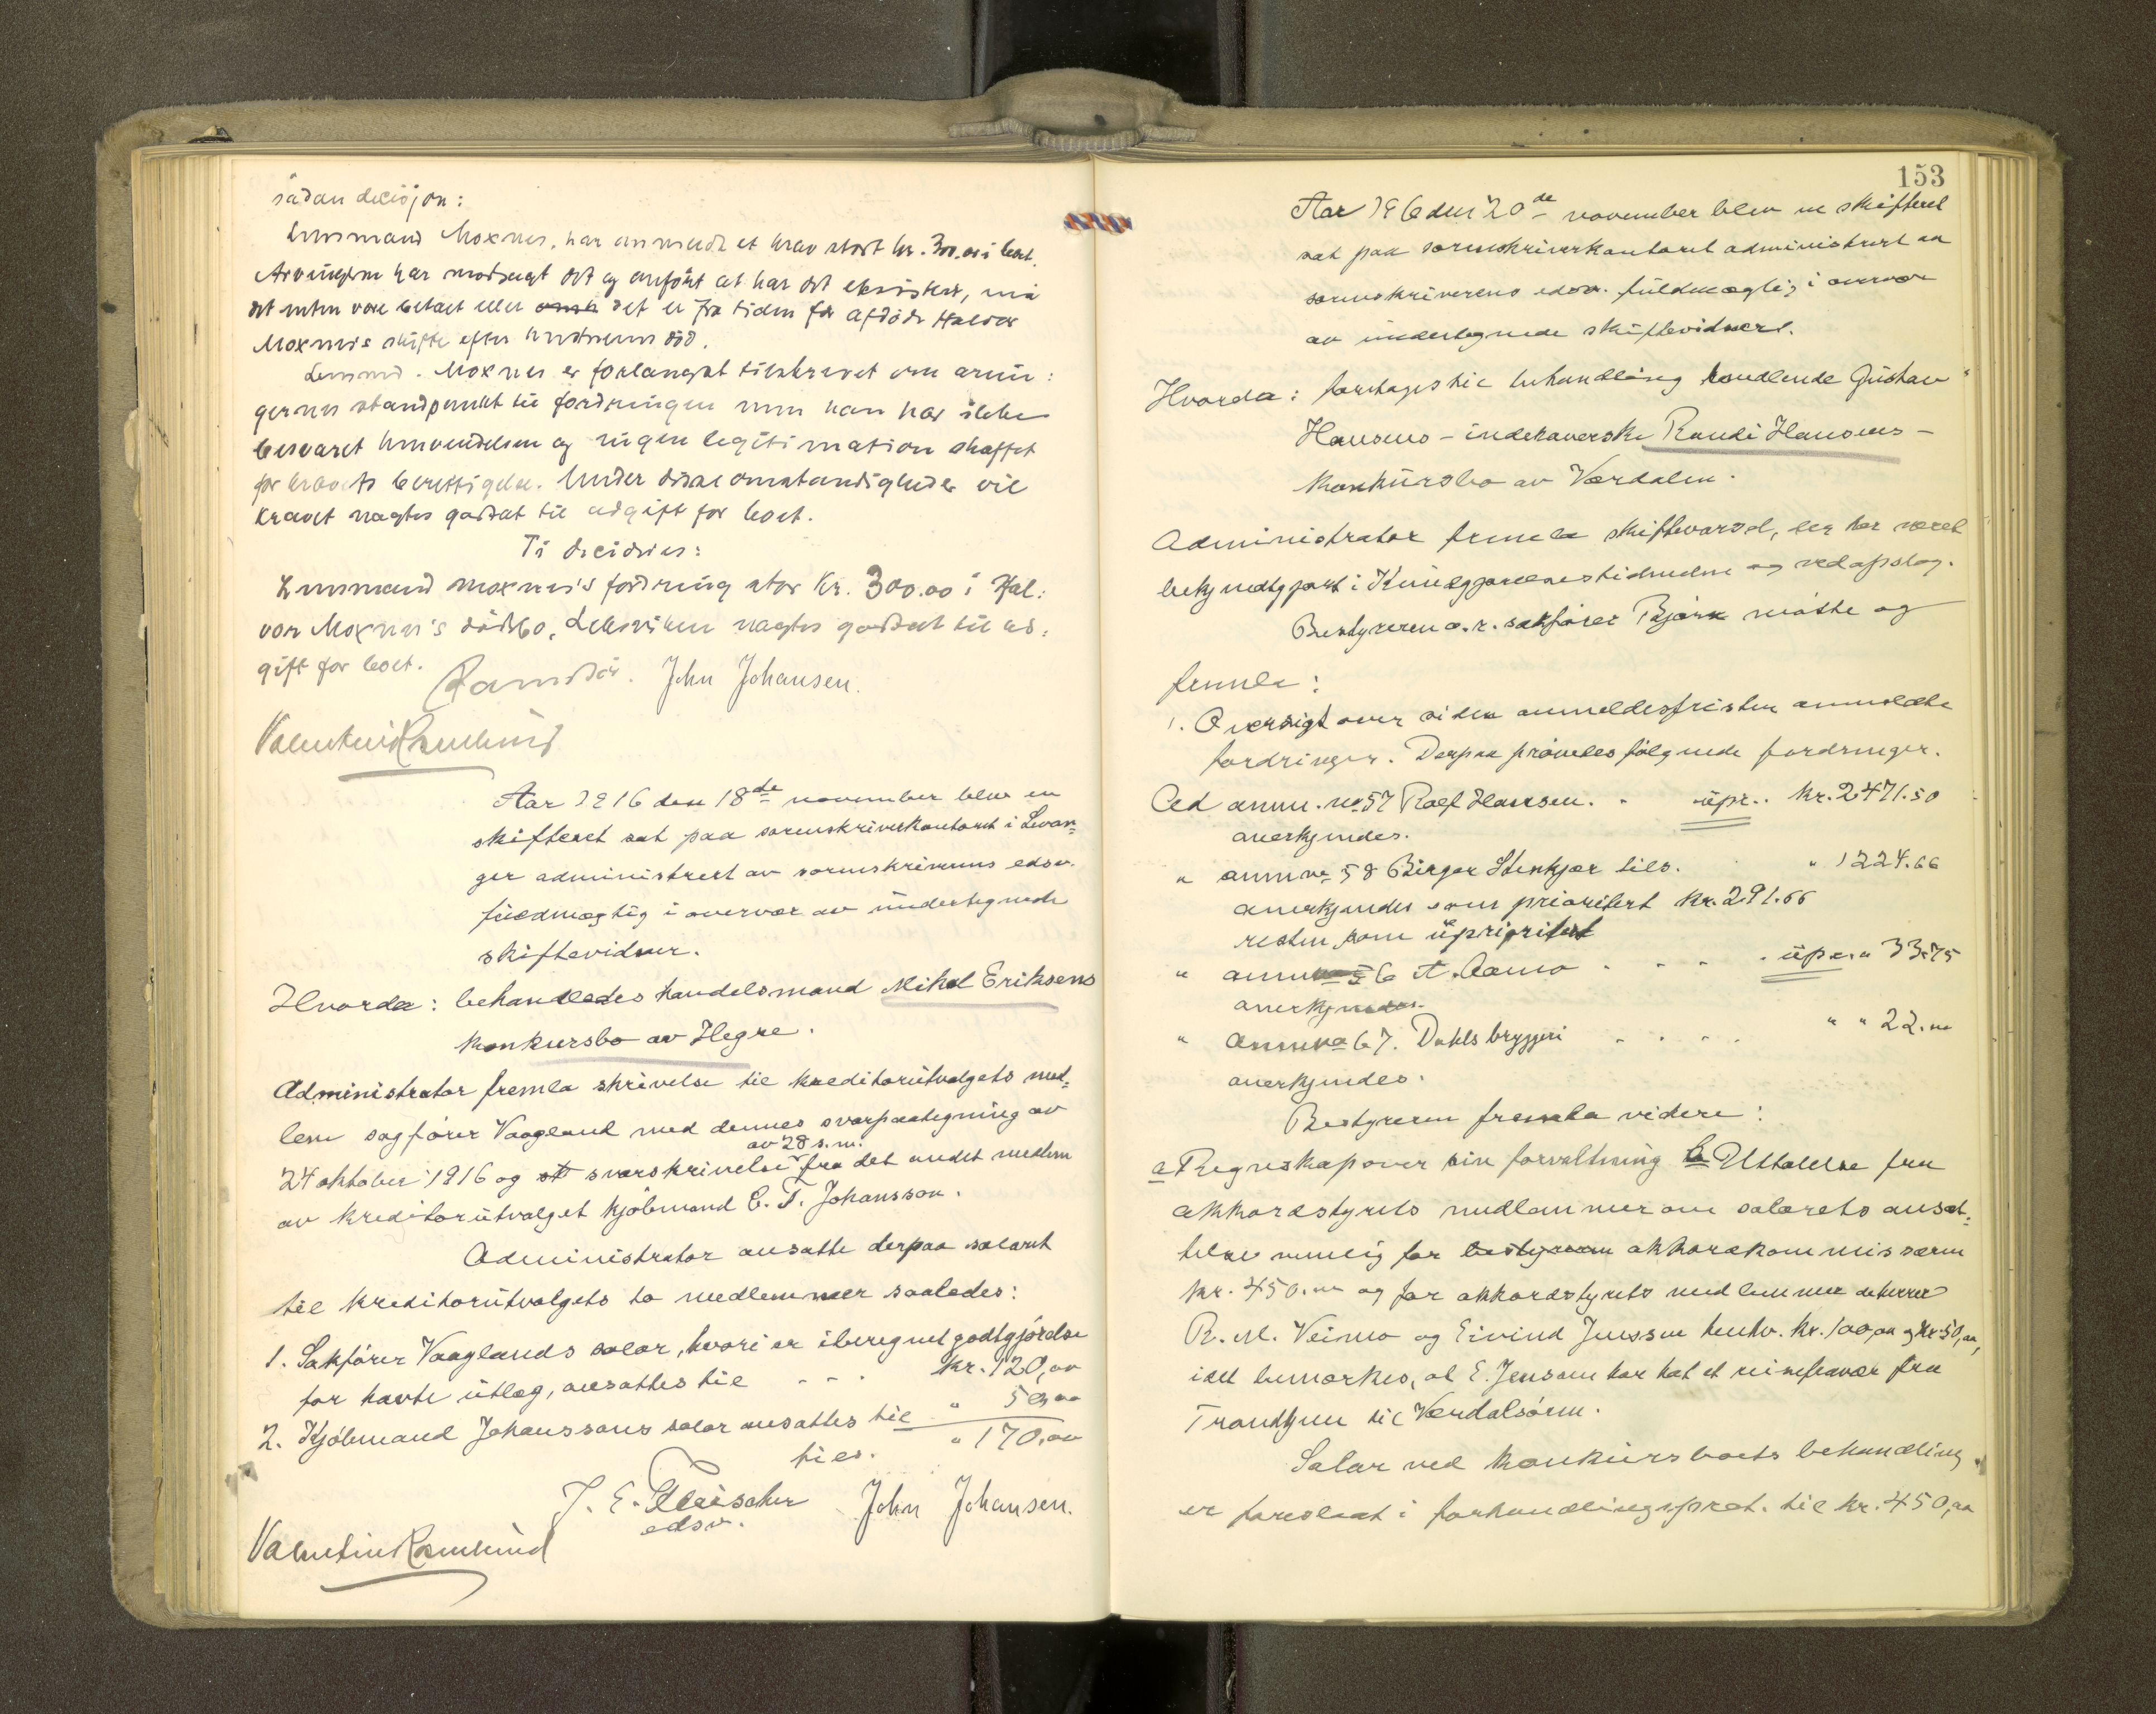 sådan decisjon:
Lensmand Moxnes, har anmeldt et krav stort kr. 300.00 i boet.
Arvingerne har motsagt det og anført at har det eksistert, må
det enten være betalt eller det er fra tiden før afdøde Halvor
Moxnes's skifte efter hustruens død.
Lensmd. Moxnes er forlængst tilskrevet om arvin:
gernes standpunkt til fordringen men han har ikke
besvaret henvendelsen og ingen legitimation skaffet
for kravets berettigelse. Under disse omstændigheder vil
kravet nægtes godtat til udgift for boet.
Ti decideres:
Lensmand Moxnes's fordring stor kr. 300.00 i Hal:
vor Moxnes's dødsbo, Leksviken nægtes godtat til ud:
gift for boet.
John Johansen.
Aar 1916 den 18de november blev en
skifteret sat paa sorenskriverkontoret i Levan=
ger administrert av sorenskriverens edsv.
fuldmægtig i overvær av undertegnede
skiftevidner.
Hvorda: behandledes handelsmand Mikal Eriksens
konkursbo av Hegre.
Administrator fremla skrivelse til kreditorutvalgets med=
lem sagfører Vaagland med dennes svarpaategning av
av 28 s.m.
24 oktober 1916 og svarskrivelse fra det andet medlem
av kreditorutvalget kjøbmand E. F. Johansson.
Administrator ansatte derpaa salæret
til kreditorutvalgets to medlemmer saaledes:
1. Sakfører Vaaglands salær, hvori er iberegnet godtgjørelse
for havte utlæg, ansattes til - - - kr. 120,00
2. Kjøbmand Johanssons salær ansattes til " 50,00
tils. " 170,00
J. E. Fleischer John Johansen.
edsv.
153
Aar 1916 den 20de november blev en skifteret
sat paa sorenskriverkontoret administrert av
sorenskriverens edsv. fuldmægtig i overvær
av undertegnede skiftevidner.
Hvorda: foretages til behandling handlende Gustav
Hansens - indehaverske Randi Hansens -
konkursbo av Værdalen.
Administrator fremla skiftevarsel, der har været
bekjendtgjort i Kundgjørelsestidende og ved opslag.
Bestyreren o.r. sakfører Bjørk møtte og
fremla:
1. Oversigt over siden anmeldesfristen anmeldte
fordringer. Derpaa prøvedes følgende fordringer.
Ad anm. no 57 Rolf Hansen. - upr.. kr. 2471.50
anerkjendes.
" anm no 58 Birger Stenkjær tils. " 1224.66
anerkjendes som prioritert kr. 291.66
resten som uprioritert
" anm no 56 A. Aamo - - - upr. " 33.75
anerkjendes.
" anm no 67. Dahls bryggeri - - - - " " 22.00
anerkjendes.
Bestyreren fremla videre:
a Regnskap over sin forvaltning b Uttalelse fra
akkordstyrets medlemmer om salærets ansæt=
telse nemlig for bestyreren akkordkommissæren
kr. 450.00 og for akkordstyrets medlemmer dherrer
R. M. Veimo og Eivind Jenssen henhv. kr. 100,00 og kr 50,00,
idet bemerkes, at E. Jenssen har hat et reisefravær fra
Trondhjem til Værdalsøren.
Salær ved konkursboets behandling
er foreslaat i forhandlingsprot. til kr. 450,00